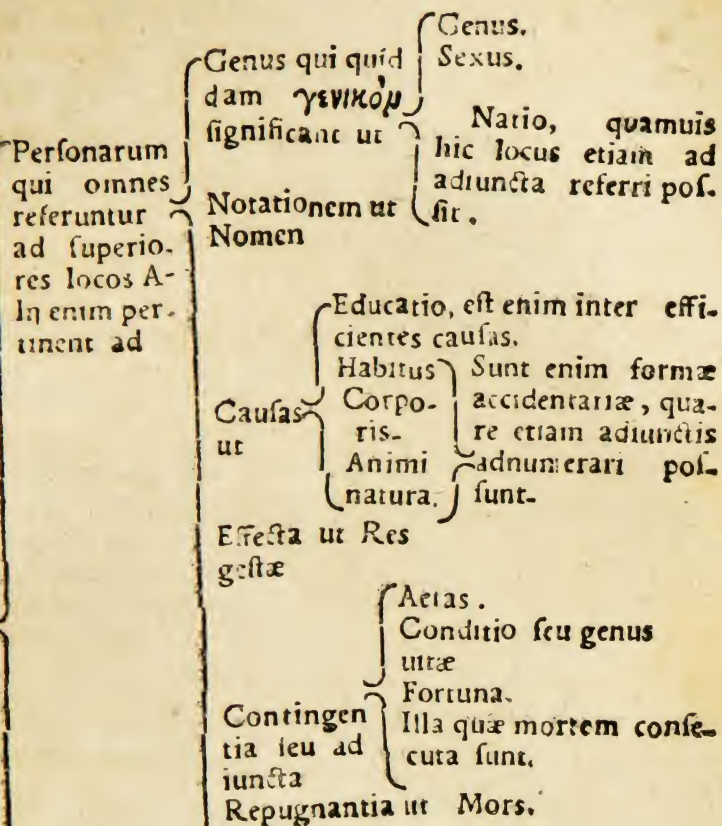 Perſonarum
qui omnes
referuntur
ad ſuperio-
res locos A-
lij enim per-
tinent ad
Genus qui quid
dam γενικὸμ
ſignificant ut
Genus.
Sexus.
Natio, quamuis
hic locus etiam ad
adiuncta referri poſ-
ſit.
Notationem ut
Nomen
Cauſas
ut
Educatio, eſt enim inter effi-
cientes cauſas.
Habitus
Corpo-
ris.
Animi
natura.
Sunt enim formæ
accidentariæ, qua-
re etiam adiunctis
adnumerari poſ-
ſunt.
Effecta ut Res
geſtæ
Contingen
tia ſeu ad
iuncta
Aetas.
Conditio ſeu genus
uitæ
Fortuna.
Illa quæ mortem conſe-
cuta ſunt.
Repugnantia ut Mors.